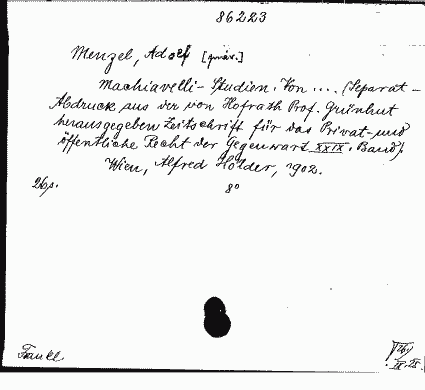 86223
Menzel, Adolf
Machiavelli-Studien. Von .... (Separat-
Abdruck aus der von Hofrath Prof. Grünhut
herausgegeben Zeitschrift für das Privat- und
öffentliche Recht der Gegenwart XXIX. Band).
Wien, Alfred Hölder, 1902.
26p. 8°